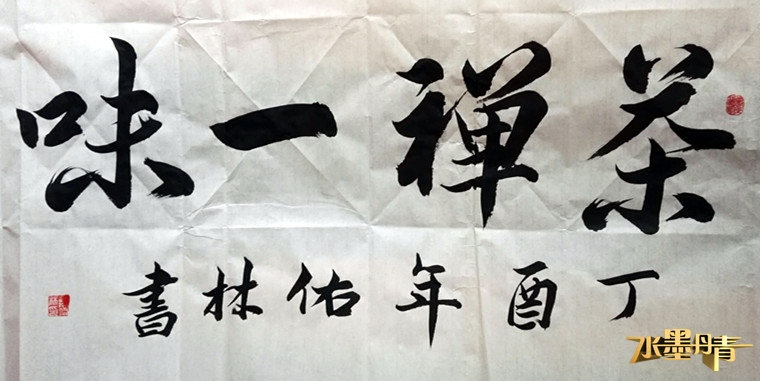 茶禅一味
丁酉年佑林書
水墨丹青